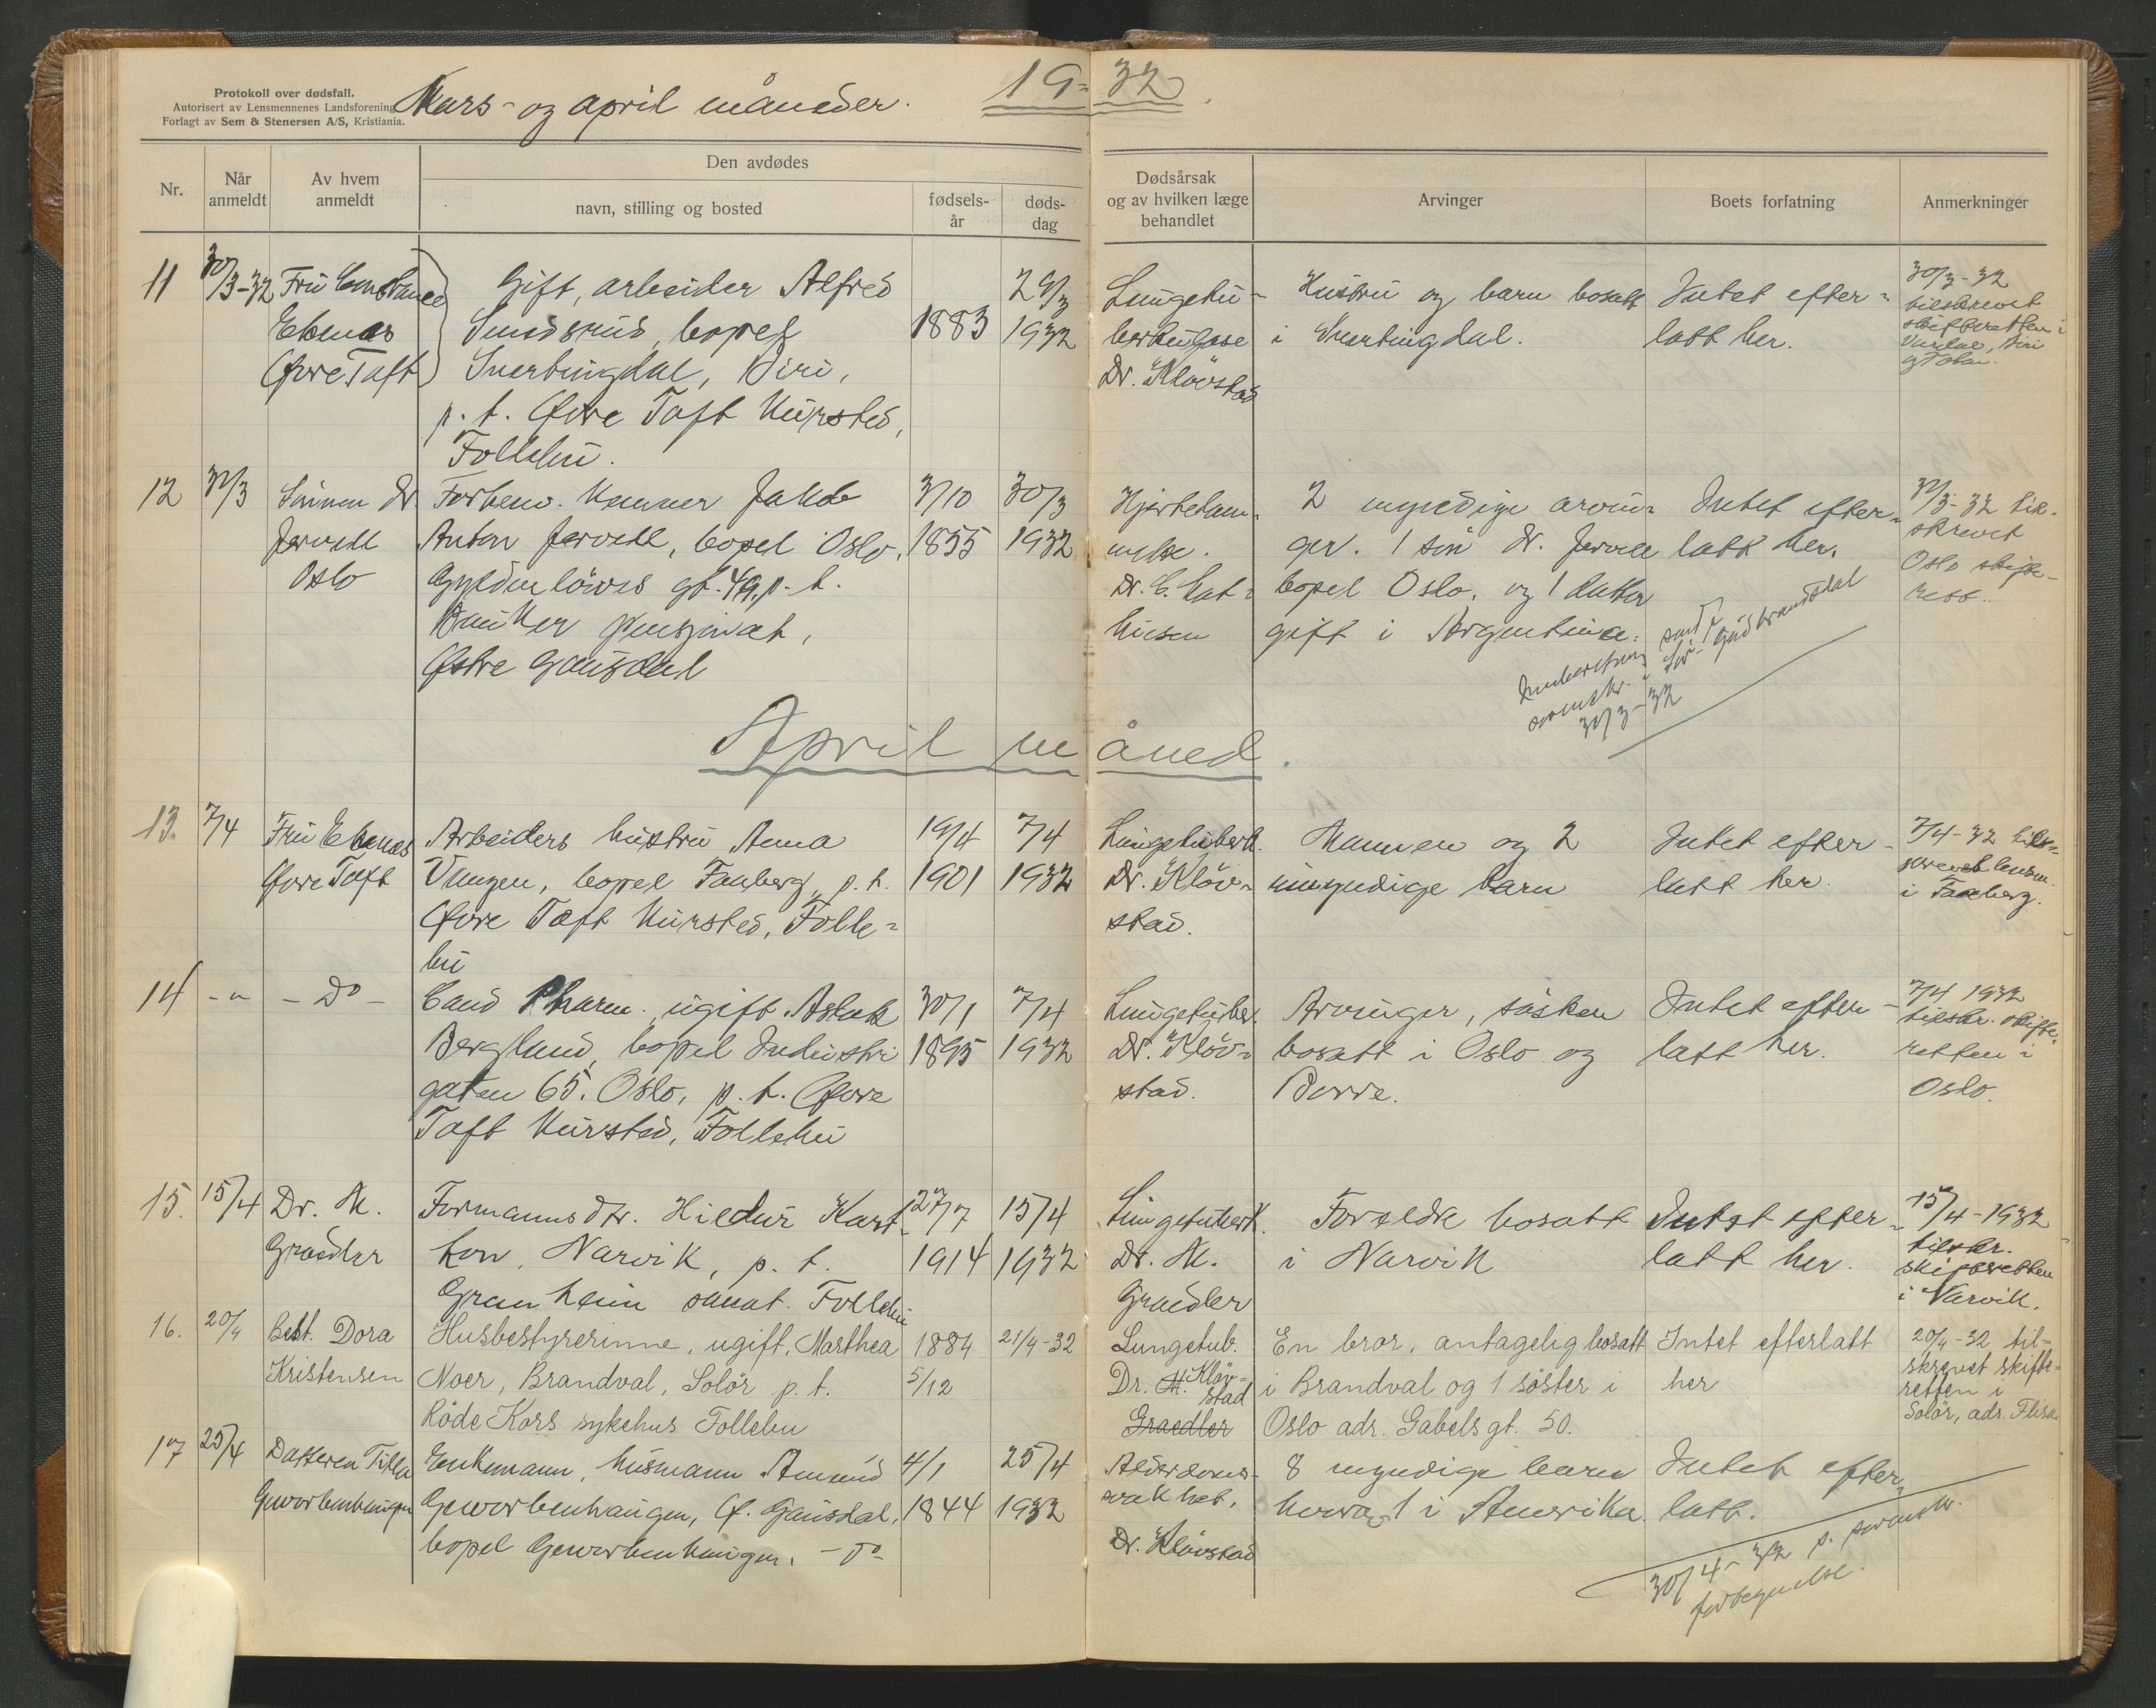 Protokoll over dødsfall.
Autorisert av Lensmennenes Landsforening.
Forlagt av Sem & Stenersen A/S, Kristiania.
Mars- og april måneder. 19=32.
Nr.
Når anmeldt
Av hvem anmeldt
Den avdødes
navn, stilling og bosted
fødsels-år
døds-dag
Dødsårsak
og av hvilken læge
behandlet
Arvinger
Boets forfatning
Anmerkninger
11
30/3-32
Fru Constance
Ekenæs
Øvre Taft
Gift, arbeider Alfred
Smedsrud, bopel
Snertingdal, Biri,
p.t. Øvre Taft Kursted,
Follebu.
1883
29/3
1932
Lungetu-
berkulose
Dr. Kløvstad
Hustru og barn bosatt
i Snertingdal.
Intet efter=
latt her.
30/3-32
tilskrevet
skifteretten i
Vardal, Biri
12
31/3
Sønnen Dr.
Jervell
Oslo
Forhenv. Kemner Jakob
Anton Jervell, bopel Oslo,
Gyldenløves gt. 49, p.t.
pensjonat,
Østre Gausdal
3/10
1855
30/3
1932
Hjertelam-
melse.
Dr.
2 myndige arvin=
ger. 1 søn dr. Jervell
bopel Oslo, og 1 datter
gift i Argentina.
Intet efter=
latt her.
31/3-32 til-
skrevet
Oslo skifte-
rett.
Innberetning sendt
sorenskr. i Sør-Gudbrandsdal
31/3-32
April måned.
13.
7/4
Fru Ekenæs
Øvre Taft
Arbeiders hustru Anna
bopel Faaberg, p.t.
Øvre Taft Kursted, Folle=
bu
19/4
1901
7/4
1932
Lungetuberk.
Dr. Kløv=
stad.
Mannen og 2
umyndige barn
Intet efter-
latt her.
7/4-32 tils=
krevet lensm.
i Faaberg.
14
- " -
- Do -
Cand Pharm., ugift. Aslak
Bergland, bopel Industri
gaten 65. Oslo, p.t. Øvre
Taft Kursted, Follebu
30/1
1895
7/4
1932
Lungetuber.
Dr. Kløv=
stad.
Arvinger, søsken
bosatt i Oslo og
Borre.
Intet efter-
latt her.
7/4 1932
tilskr. skifte-
retten i
Oslo.
15.
15/4
Dr. M.
Grædler
Formanns dtr. Hildur Karl-
Narvik, p.t.
Granheim sanat. Follebu
27/7
1914
15/4
1932
Lungetuberk.
Dr. M.
Grædler
Foreldre bosatt
i Narvik
Intet efter-
latt her.
15/4-1932
tilskr.
skifteretten
i Narvik.
16.
20/4
Best. Dora
Kristensen
Husbestyrerinne, ugift, Marthea
Noer, Brandval, Solør p.t.
Røde Kors sykehus Follebu
1884
5/12
21/4-32
Lungetub.
Dr. M. Kløv-
stad
Graedler
En bror, antagelig bosatt
i Brandval og 1 søster i
Oslo adr. Gabels gt. 50.
Intet efterlatt
her
20/4-32 til=
skrevet skifte=
retten i
Solør, adr. Flisa
17
25/4
Datteren Tilla
Enkemann, husmann Amund
Ø. Gausdal,
bopel
- Do -
4/1
1844
25/4
1932
Alderdoms-
svakhet,
Dr. Kløvstad
8 myndige barn
hvorav 1 i Amerika.
Intet efter=
latt.
30/4-32 p. sorenskr.
fortegnelse.